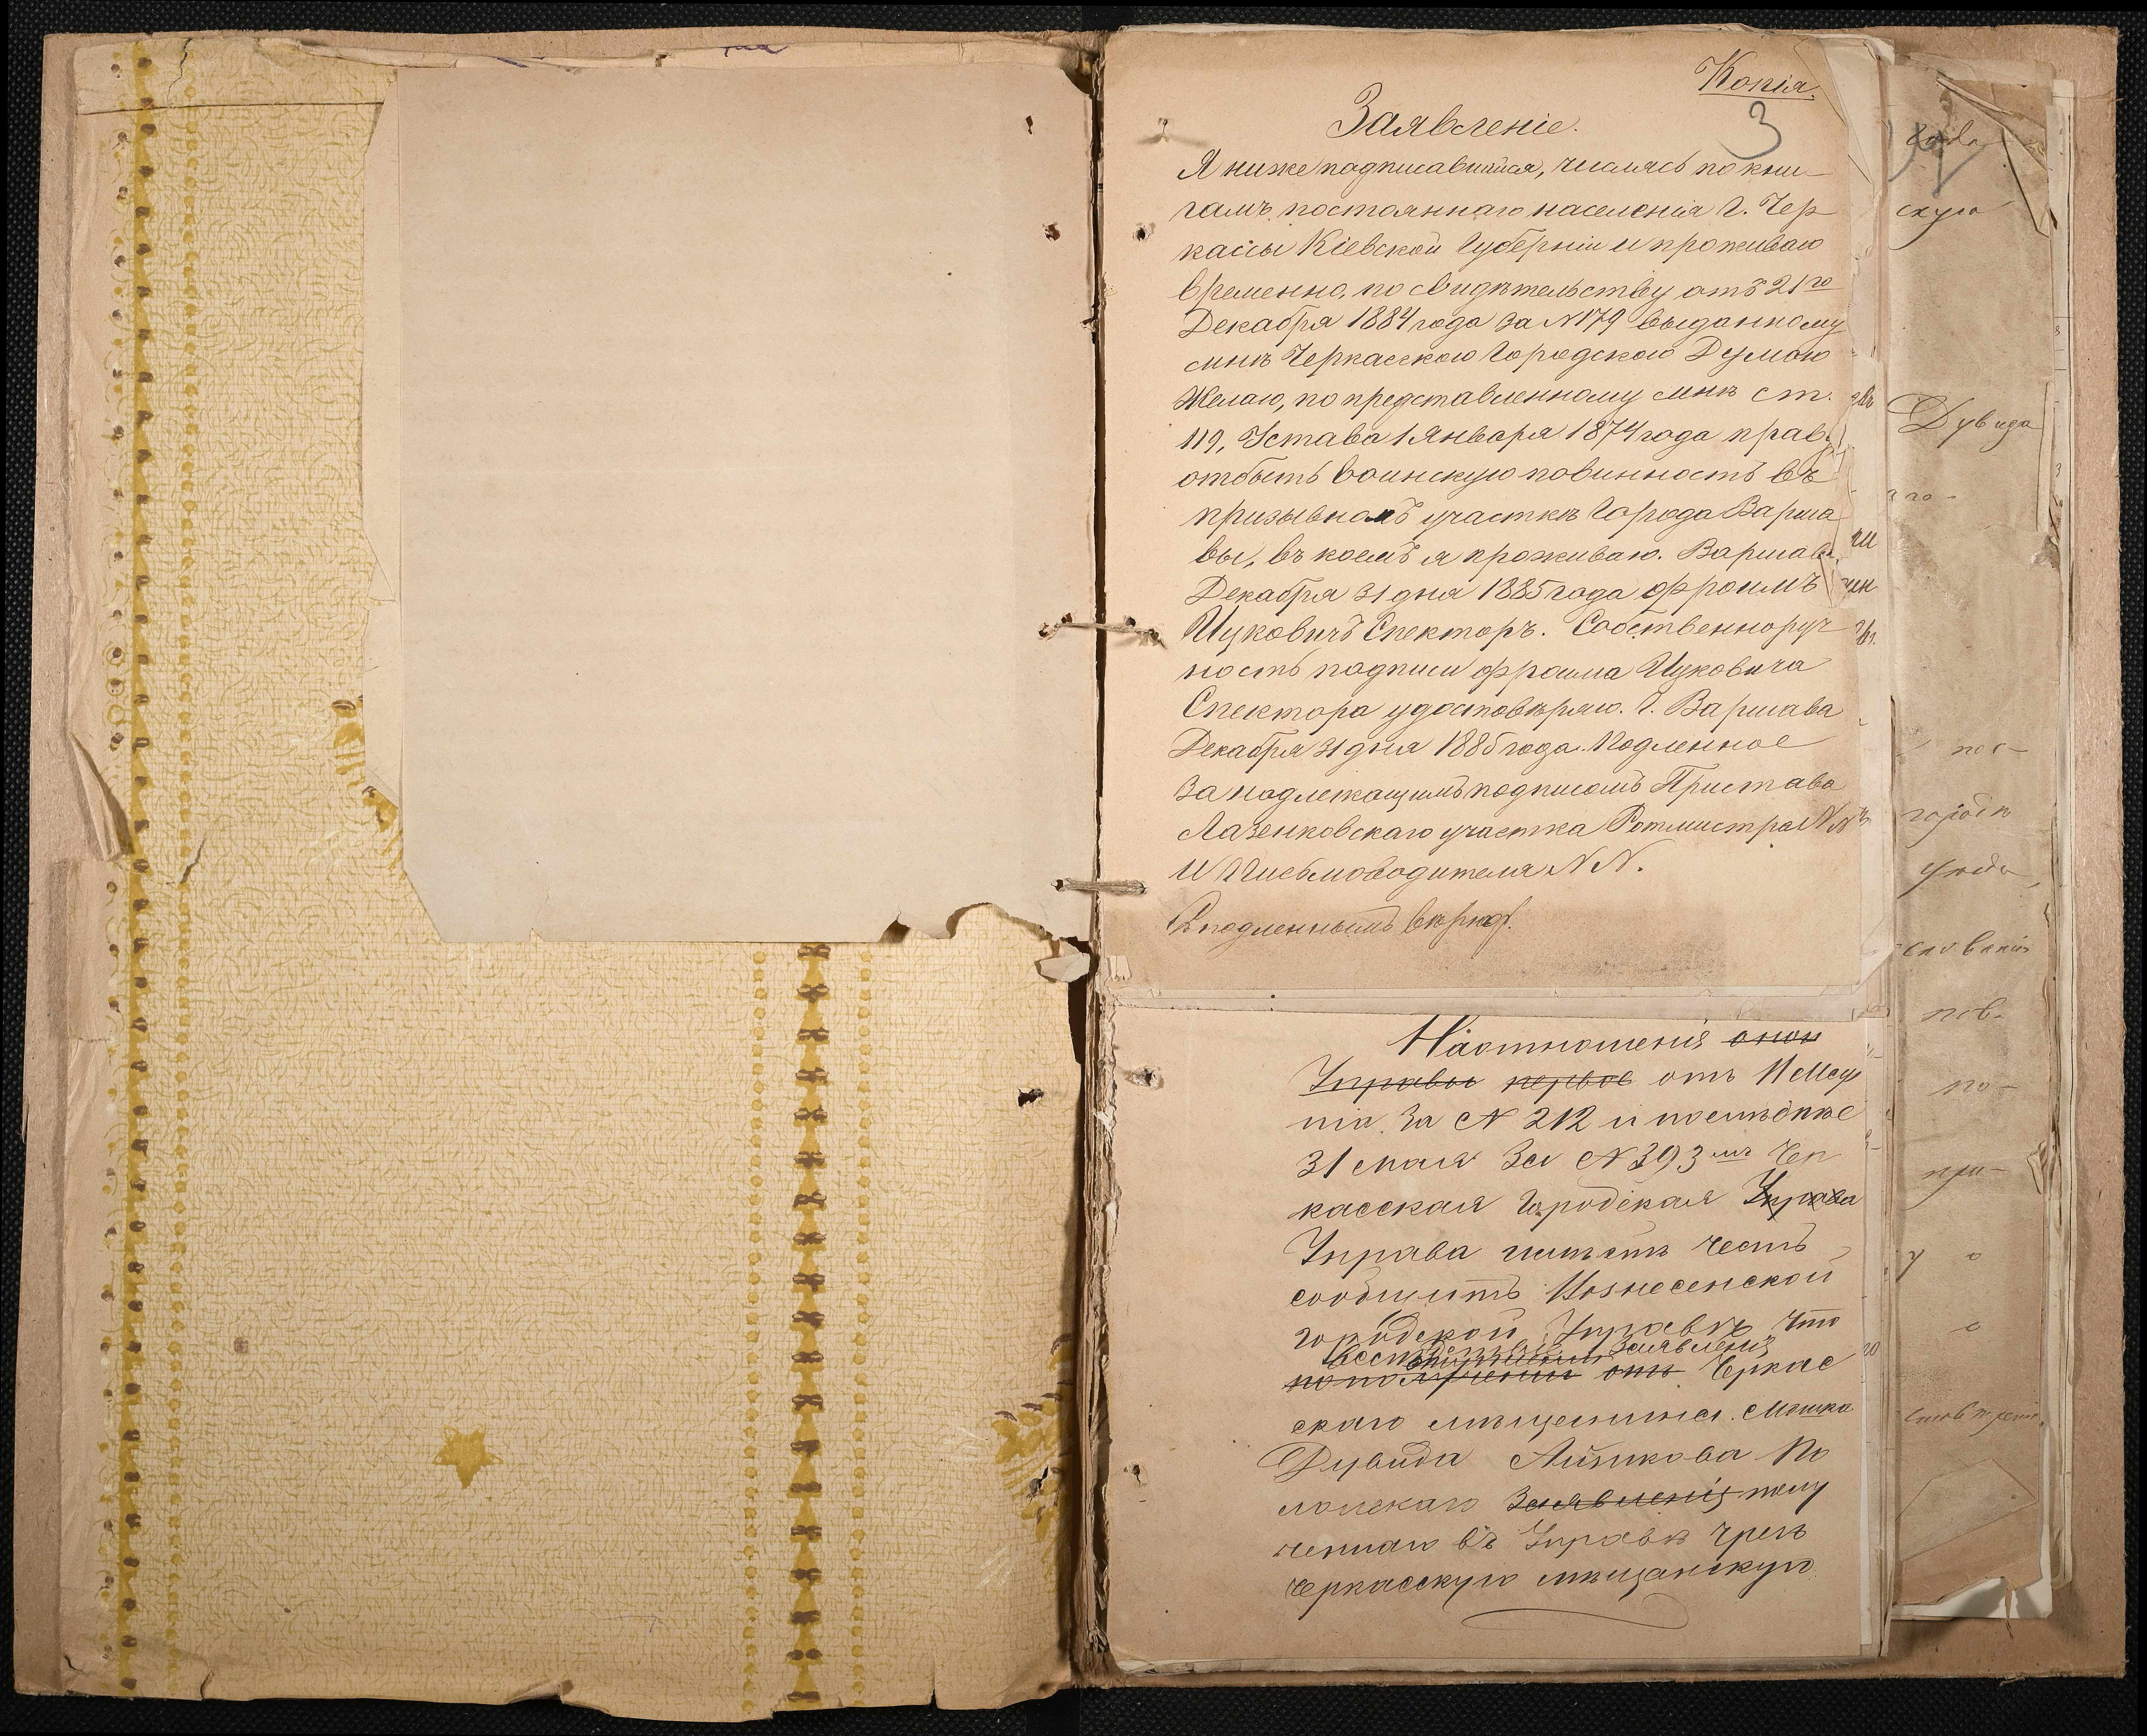 Копія.
3
Заявленіе.
Я нижеподписавшійся, числясь по кни-
гамъ постояннаго населенія г. Чер
кассы Кіевской Губерніи и проживаю
временно, по свидѣтельству отъ 21го
Декабря 1884 года за N 179 выданному
мнѣ Черкасскою Городскою Думою
Желаю, по представленному мнѣ ст.
119, Устава 1 Января 1874 года прав.
отбыть воинскую повинность въ
призывномъ участкѣ города Варша
вы, въ коемъ я проживаю. Варшава
Декабря 31 дня 1885 года Фроимъ
Ицковичъ Спекторъ. Собственноруч
ность подписи Фроима Ицковича
Спектора удостовѣряю. Г. Варшава
Декабря 31 дня 1885 года. Подленное
за надлежащимъ подписомъ Пристава
Лазенковскаго участка Ротмистра NN
и Письмоводителя N N.
Съ подленнымъ вѣрно.
На отношенія
Управы первое отъ 11
за N 212 и послѣднѣе
31 мая за N 393 Чер
касская Городская Управа
Управа имѣетъ честь
сообщить Вознесенской
городской Управѣ что
заявленія
Черкас
скаго мѣщанина Мошка
Дувида Айзикова По
лонскаго заявленія полу
ченнаго въ Управѣ чрезъ
черкасскую мѣщанскую
года
скую
Дувида
по-
пов.
по-
при-